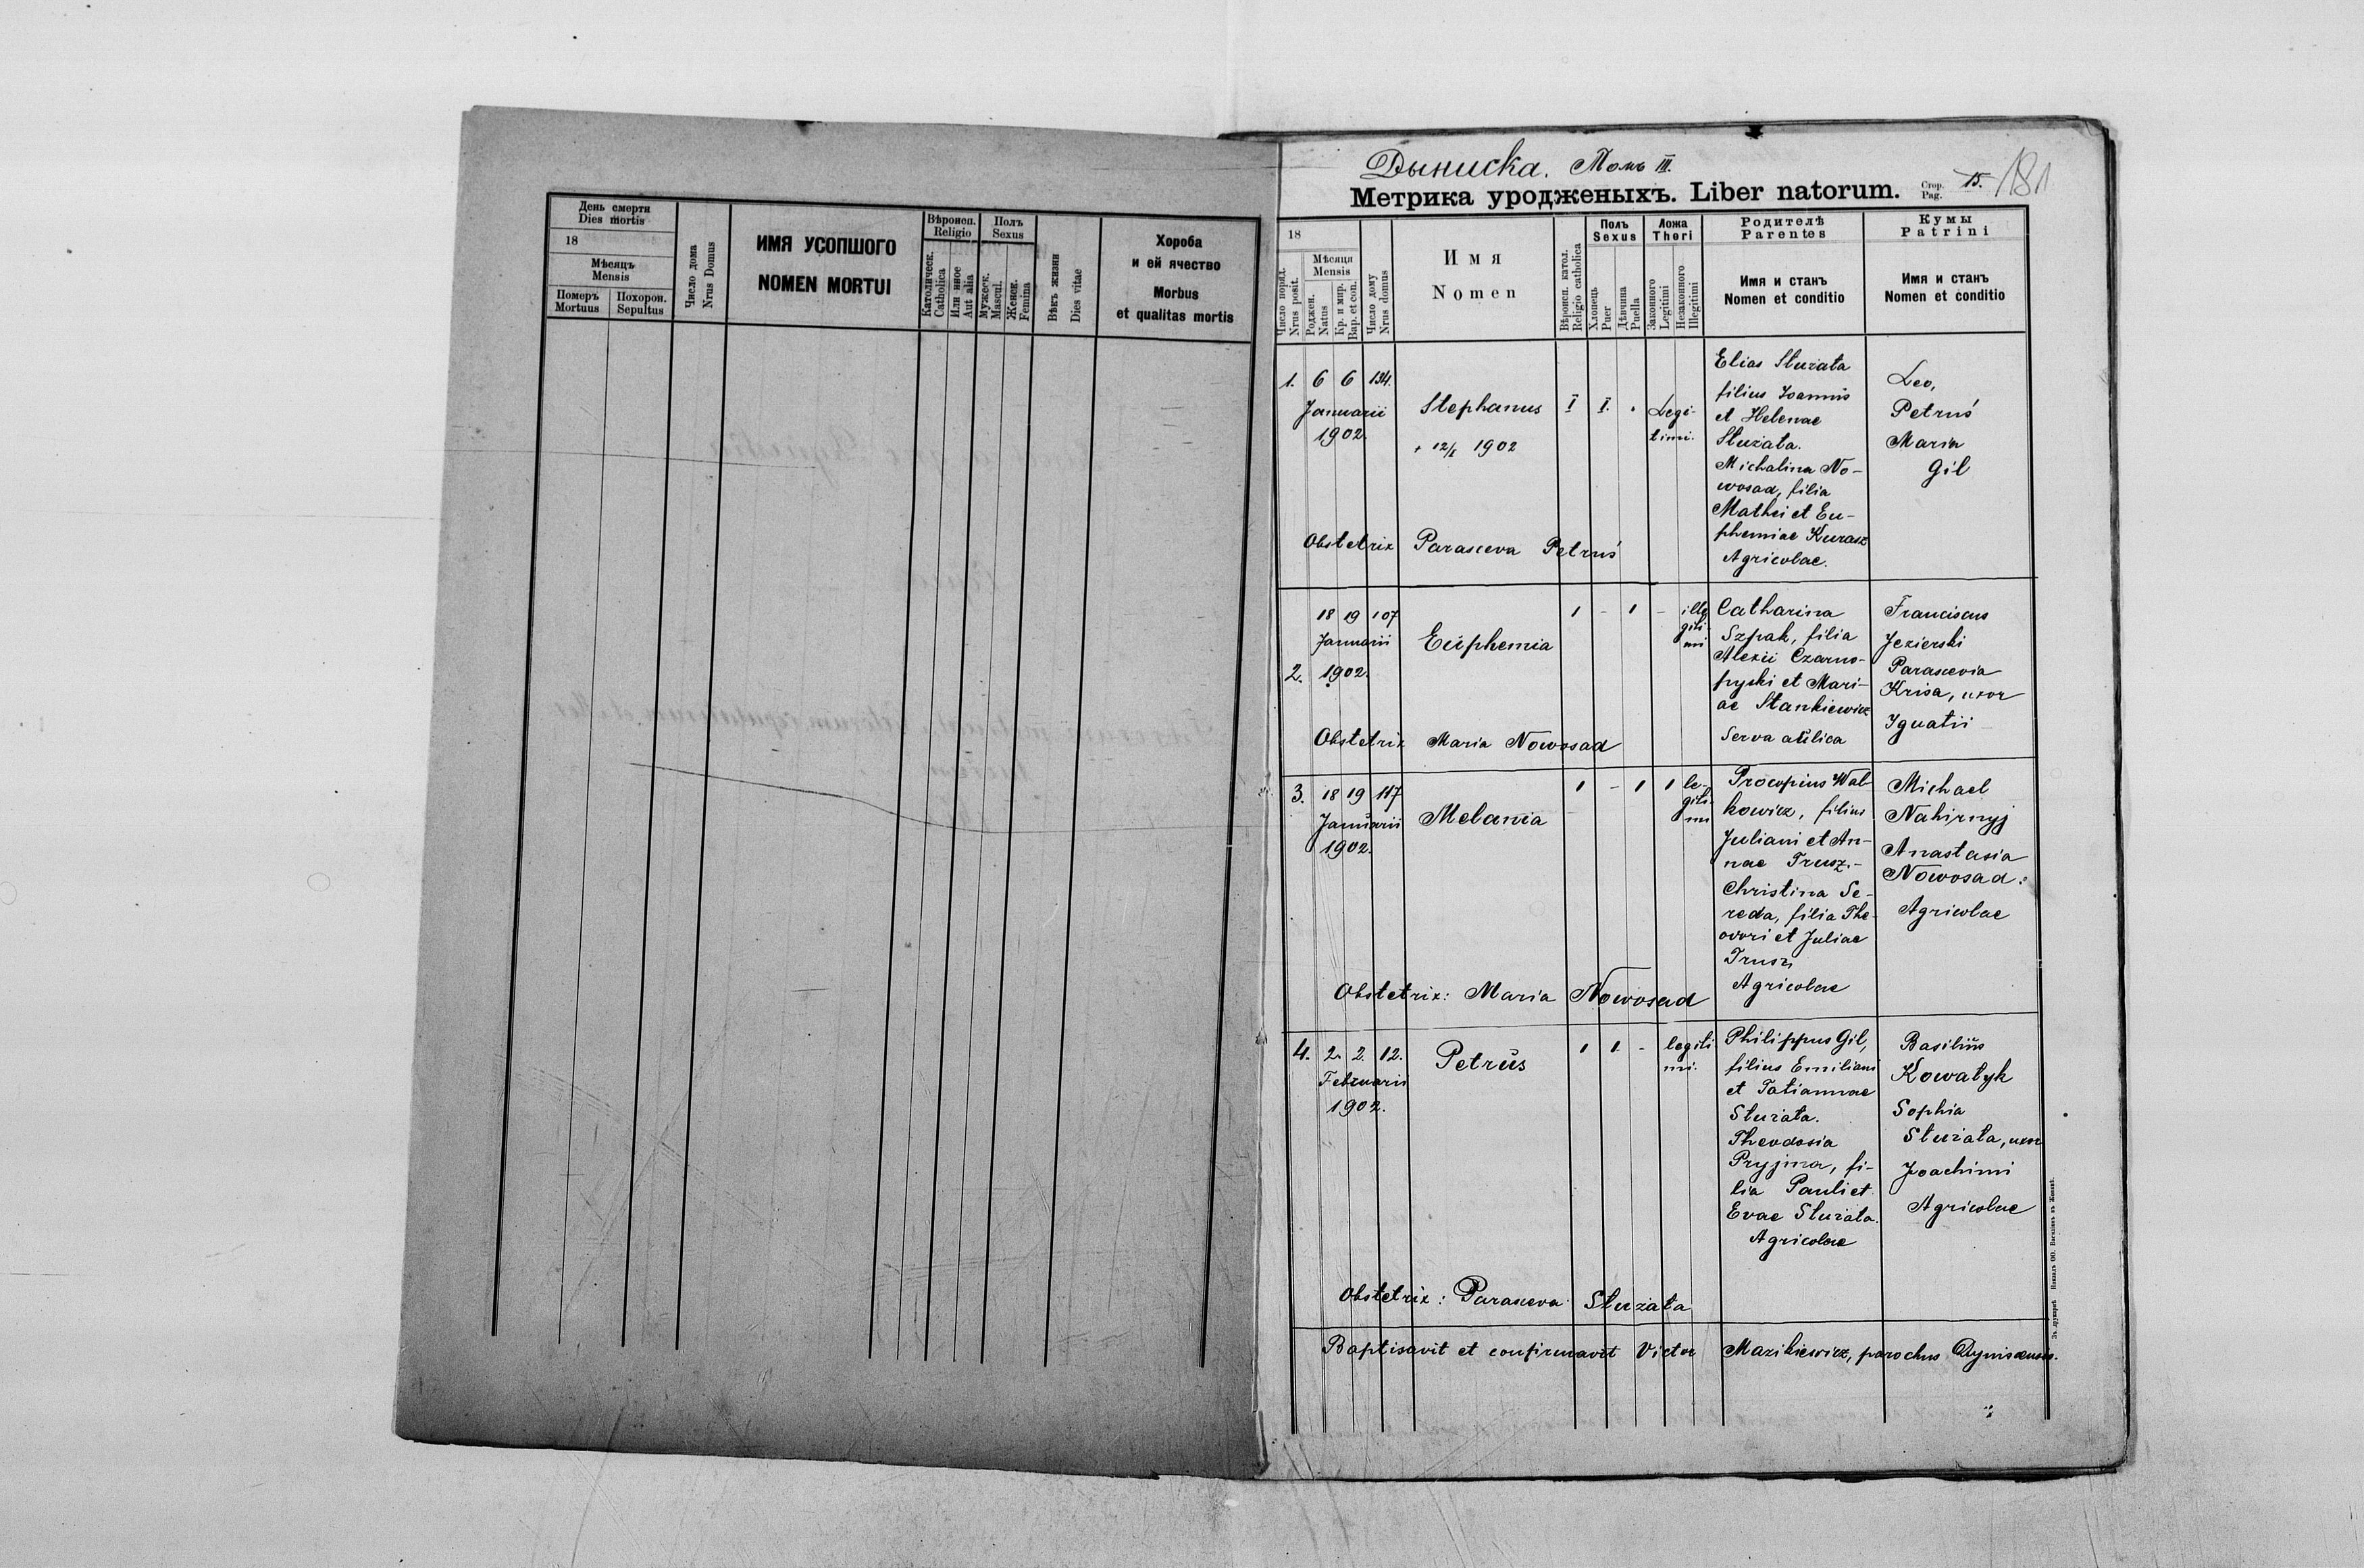 День смерти
Dies mortis
18
Мѣсяцъ
Mensis
Померъ
Mortuus
Похорон.
Sepultus
Число дома
Nrus Domus
ИМЯ УСОПШОГО
NOMEN MORTUI
Вѣроисп.
Religio
Католическ.
Catholica
Или иное
Aut alia
Полъ
Sexus
Мужеск.
Mascul.
Женск.
Femina
Вѣкъ жизни
Dies vitae
Хороба
и ей ячество
Morbus
et qualitas mortis
Дыниска. Томъ III.
Метрика уродженыхъ. Liber natorum.
Стор.
Pag.
15.
181
18
Число поряд.
Nrus posit.
Мѣсяця
Mensis
Роджен.
Natus
Кр. и мир.
Bap. et con.
Число дому
Nrus domus
Имя
Nomen
Вѣроисп. катол.
Religio catholica
Полъ
Sexus
Хлопець
Puer
Дѣвчина
Puella
Ложа
Thori
Законного
Legitimi
Незаконного
Illegitimi
Родителѣ
Parentes
Имя и станъ
Nomen et conditio
Кумы
Patrini
Имя и станъ
Nomen et conditio
1. 6 6 134.
Januarii
1902.
Stephanus
+ 12/I 1902
I I. .
Legi-
timi.
Elias Sturata
filius Joannis
et Helenae
Sturata.
Michalina No-
wosad, filia
Mathei et Eu-
phemiae Kurasz
Agricolae.
Leo,
Petruś
Maria
Gil
Obstetrix Parasceva Petruś
2.
18 19 107
Januarii
1902.
Euphemia
1 - 1 -
ille
giti-
mi
Catharina
Szpak, filia
Alexii Czarno-
pyski et Mari-
ae Stankiewicz
Serva aulica
Franciscus
Jezierski
Parascevia
Krisa, uxor
Ignatii
Obstetrix Maria Nowosad
3. 18 19 117
Januarii
1902.
Melania
1 - 1 1
le-
giti-
mi
Procopius Wal-
kowicz, filius
Juliani et An-
nae Trusz.-
Christina Se-
reda, filia The-
odori et Juliae
Trusz
Agricolae
Michael
Nahirnyj
Anastasia
Nowosad:
Agricolae
Obstetrix: Maria Nowosad
4. 2. 2. 12.
Februarii
1902.
Petrus
1 1. -
legiti
mi.
Philippus Gil,
filius Emiliani
et Tatiannae
Sturata.
Theodosia
Pryjma, fi-
lia Pauli et
Evae Sturata.
Agricolae
Basilius
Kowalyk
Sophia
Sturata, uxor
Joachimi
Agricolae
Obstetrix: Parasceva Sturata
Baptisavit et confirmavit Victor Mazikiewicz, parochus Dyniscensis.